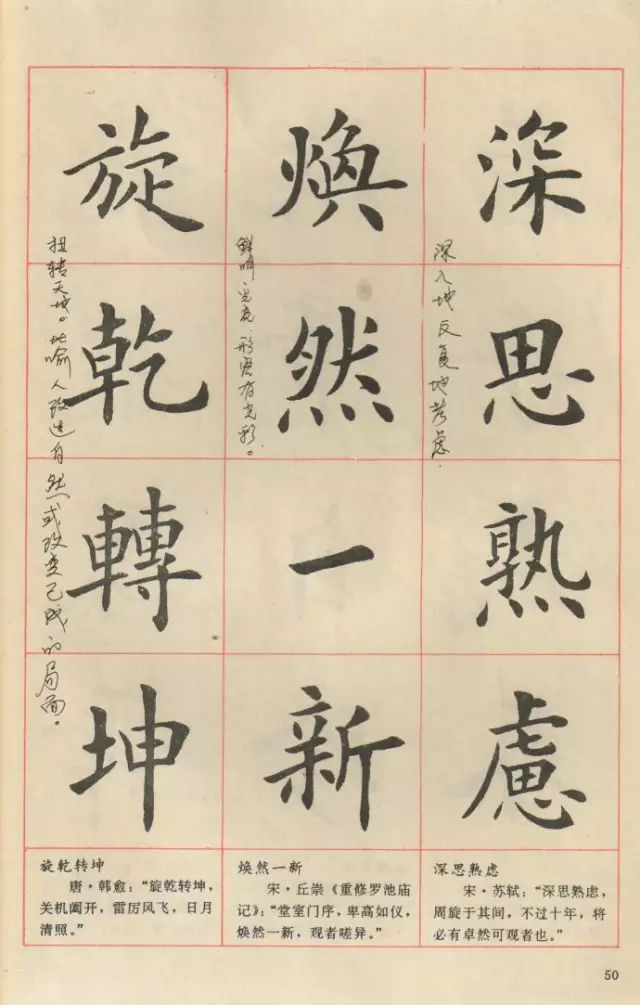 深思熟慮
深入地反复地考虑.
煥然一新
鲜明光亮.形容有光彩。
旋乾轉坤
扭转天地。比喻人改造自然或改变已成的局面。
深思熟虑
宋·苏轼:“深思熟虑,
周旋于其间,不过十年,将
必有卓然可观者也。”
焕然一新
宋·丘崇《重修罗池庙
记》:“堂室门序,卑高如仪,
焕然一新,观者嗟异。”
旋乾转坤
唐·韩愈:“旋乾转坤,
关机阖开,雷厉风飞,日月
清照。”
50